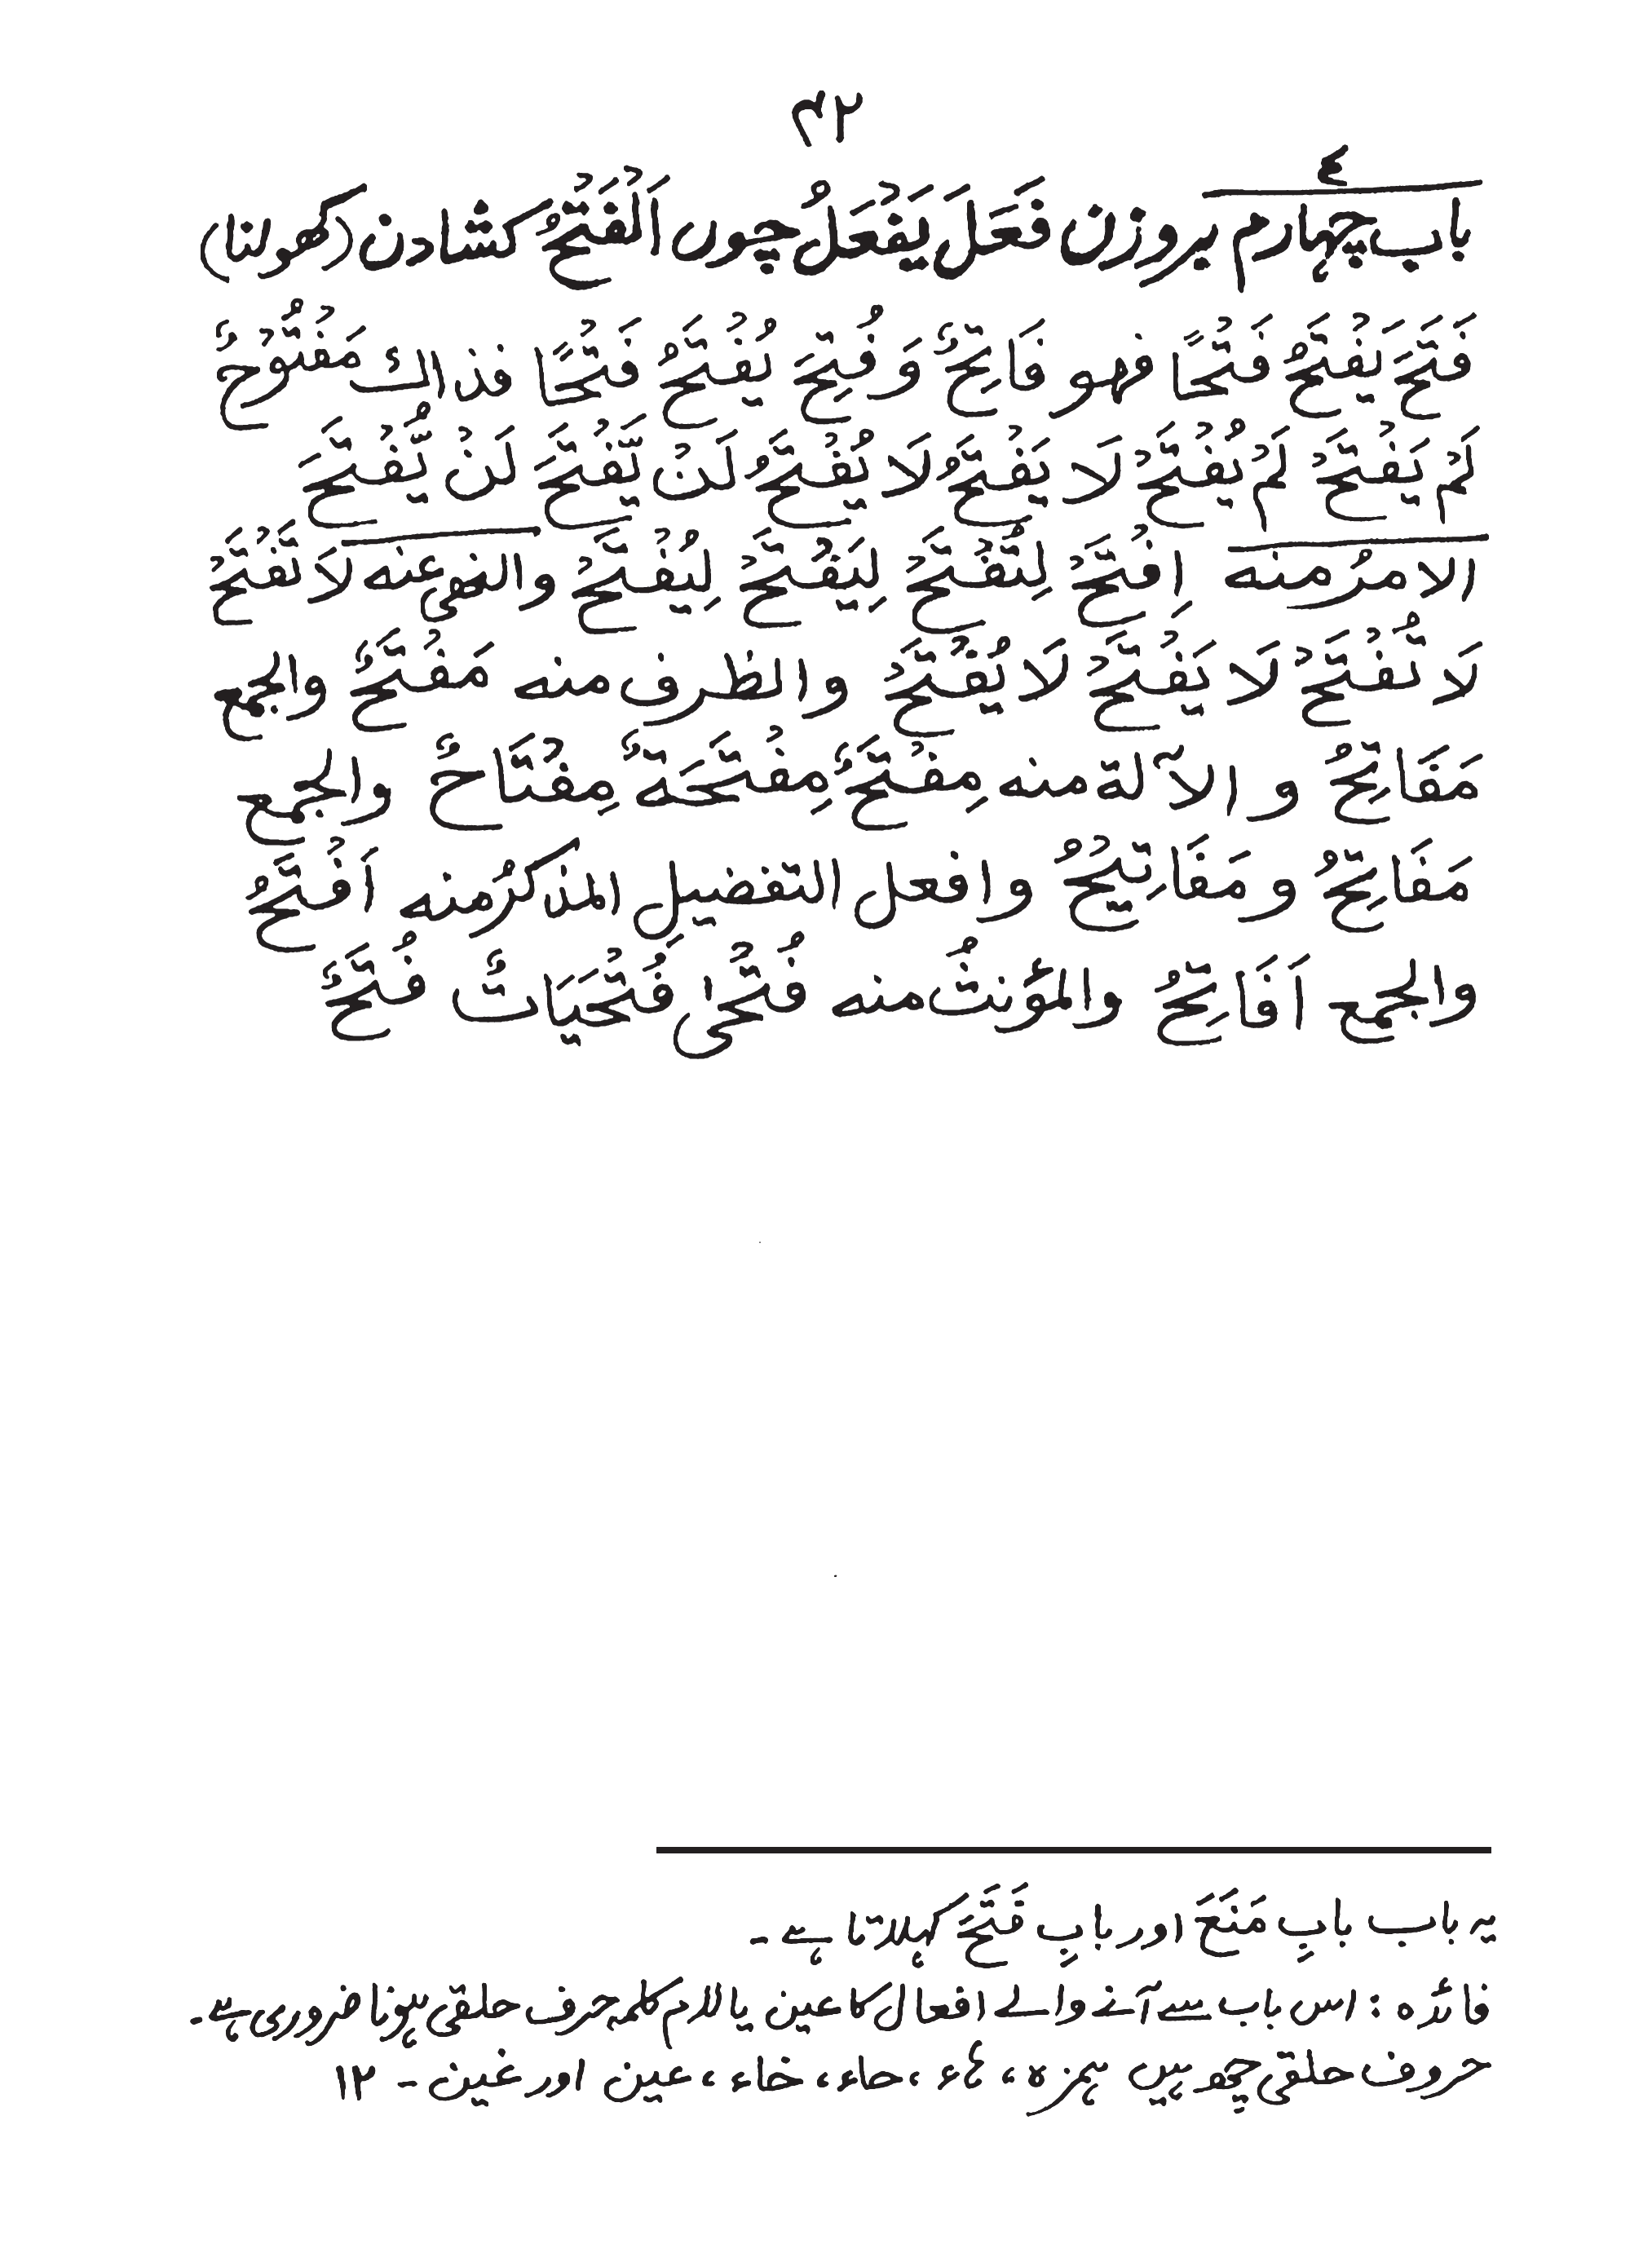 ۴۲
باب چہارم بروزن فَعَلَ يَفْعَلُ چوں اَلْفَتْحُ کشادن (کھولنا)
فَتَحَ يَفْتَحُ فَتْحًا فهو فَاتِحٌ وَ فُتِحَ يُفْتَحُ فَتْحًا فذالك مَفْتُوْحٌ
لَمْ يَفْتَحْ لَمْ يُفْتَحْ لَا يَفْتَحُ لَا يُفْتَحُ لَنْ يَّفْتَحَ لَنْ يُّفْتَحَ
الامرُ منه اِفْتَحْ لِتُفْتَحْ لِيَفْتَحْ لِيُفْتَحْ والنهى عنه لَا تَفْتَحْ
لَا تُفْتَحْ لَا يَفْتَحْ لَا يُفْتَحْ والظرف منه مَفْتَحٌ والجمع
مَفَاتِحُ و الآلة منه مِفْتَحٌ مِفْتَحَةٌ مِفْتَاحٌ والجمع
مَفَاتِحُ و مَفَاتِيْحُ و افعل التفضيل المذكرُ منه اَفْتَحُ
والجمع اَفَاتِحُ والمؤنثُ منه فُتْحٰى فُتْحَيَاتٌ فُتَحٌ
یہ باب بابِ مَنَعَ اور بابِ فَتَحَ کہلاتا ہے ۔
فائدہ : اس باب سے آنے والے افعال کا عین یا لام کلمہ حرف حلقی ہونا ضروری ہے۔
حروف حلقی چھ ہیں ہمزہ، ہاء، حاء، خاء، عین اور غین ۔ ۱۲